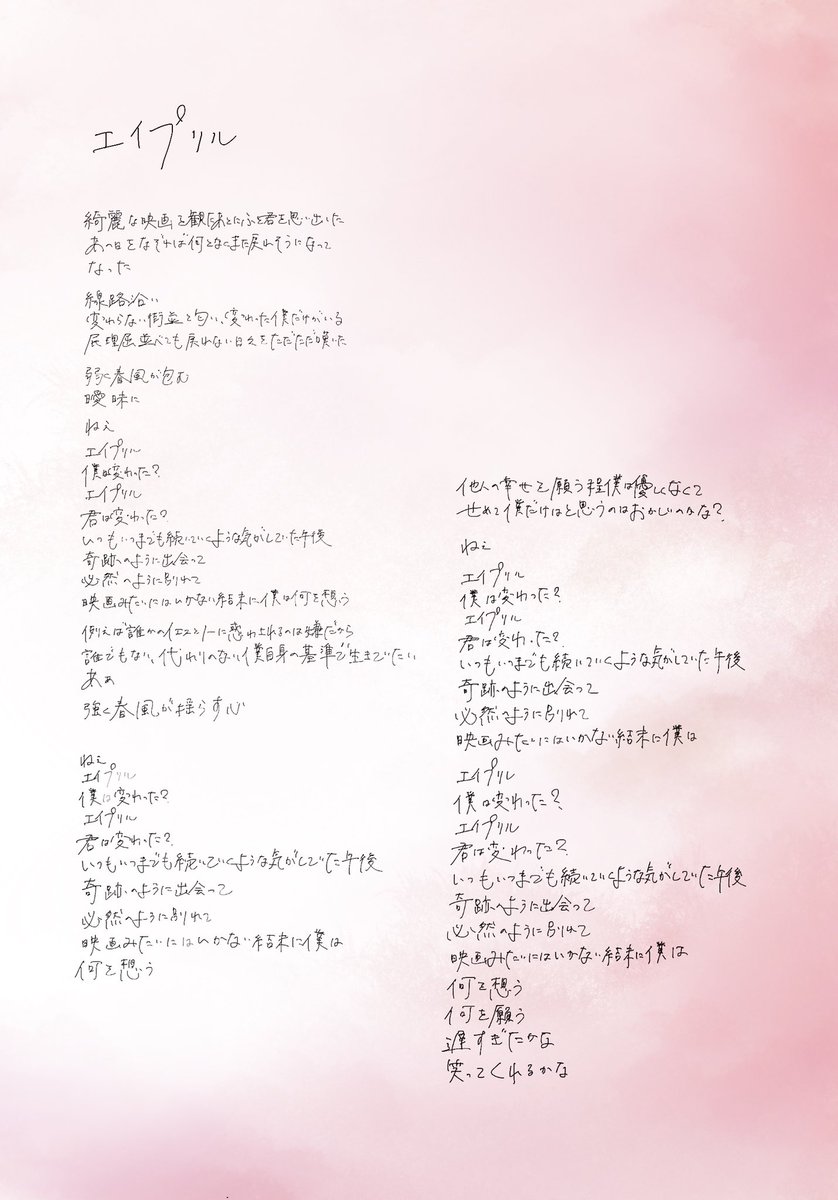 エイプリル
綺麗な映画を観たあとにふと君を思い出した
あの日をなぞれば何となくまた戻れそうになって
なった
線路沿い
変わらない街並と匂い、変わった僕だけがいる
屁理屈並べても戻れない日々をただただ嘆いた
弱く春風が包む
曖昧に
ねえ
エイプリル
僕は変わった?
エイプリル
君は変わった?
いつもいつまでも続いていくような気がしていた午後
奇跡のように出会って
必然のように別れて
映画みたいにはいかない結末に僕は何を想う
例えば誰かのイエスノーに惑わされるのは嫌だから
誰でもない、代わりのない僕自身の基準で生きていたい
あぁ
強く春風が揺らす心
ねぇ
エイプリル
僕は変わった?
エイプリル
君は変わった?
いつもいつまでも続いていくような気がしていた午後
奇跡のように出会って
必然のように別れて
映画みたいにはいかない結末に僕は
何を想う
他人の幸せを願う程僕は優しくなくて
せめて僕だけはと思うのはおかしいのかな?
ねぇ
エイプリル
僕は変わった?
エイプリル
君は変わった?
いつもいつまでも続いていくような気がしていた午後
奇跡のように出会って
必然のように別れて
映画みたいにはいかない結末に僕は
エイプリル
僕は変わった?
エイプリル
君は変わった?
いつもいつまでも続いていくような気がしていた午後
奇跡のように出会って
必然のように別れて
映画みたいにはいかない結末に僕は
何を想う
何を願う
遅すぎたかな
笑ってくれるかな